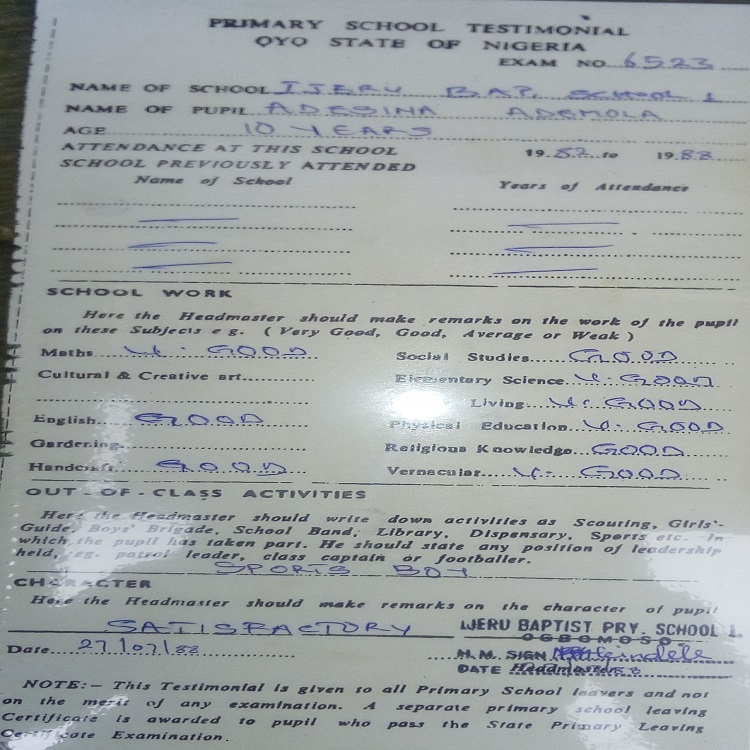 PRIMARY SCHOOL TESTIMONIAL
OYO STATE OF NIGERIA
EXAM NO. 6523
NAME OF SCHOOL IJERU BAP. SCHOOL 1
NAME OF PUPIL ADESINA ADEMOLA
AGE 10 YEARS
ATTENDANCE AT THIS SCHOOL 19.82 to 19.88
SCHOOL PREVIOUSLY ATTENDED
Name of School Years of Attendance
SCHOOL WORK
Here the Headmaster should make remarks on the work of the pupil
on these Subjects e g. ( Very Good, Good, Average or Weak )
Maths V. GOOD Social Studies GOOD
Cultural & Creative art Elementary Science V. GOOD
Living V. GOOD
English GOOD Physical Education V. GOOD
Gardening Religious Knowledge GOOD
Handcraft GOOD Vernacular V. GOOD
OUT - OF - CLASS ACTIVITIES
Here the Headmaster should write down activities as Scouting, Girls'-
Guide, Boys' Brigade, School Band, Library, Dispensary, Sports etc. in
which the pupil has taken part. He should state any position of leadership
held, eg. patrol leader, class captain or footballer.
SPORTS BOY
CHARACTER
Here the Headmaster should make remarks on the character of pupil
SATISFACTORY IJERU BAPTIST PRY. SCHOOL 1.
OGBOMOSO
Date 27/07/88 H.M. SIGN
DATE Headmaster
NOTE:- This Testimonial is given to all Primary School leavers and not
on the merit of any examination. A separate primary school leaving
Certificate is awarded to pupil who pass the State Primary Leaving
Certificate Examination.